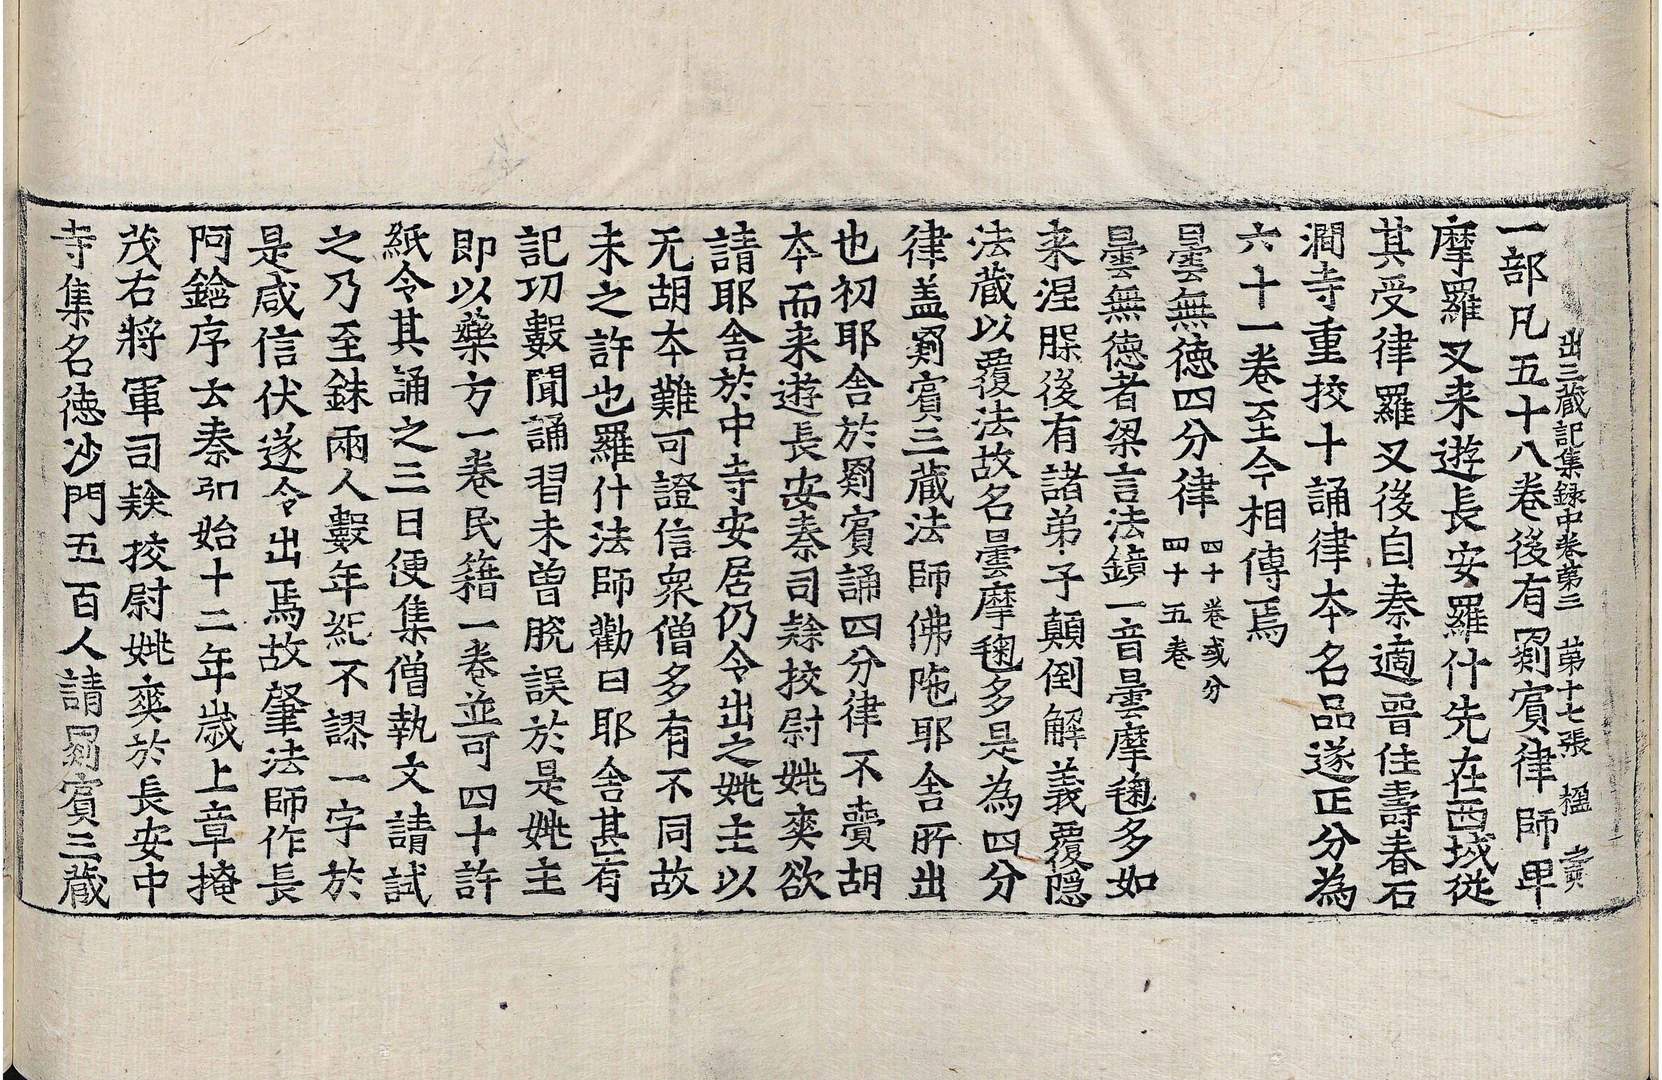 出三藏記集録中卷第三 第十七張 楹
一部凡五十八卷後有罽賓律師卑
摩羅叉来遊長安羅什先在西域從
其受律羅叉後自秦適晉住壽春石
澗寺重挍十誦律本名品遂正分為
六十一卷至今相傳焉
曇無德四分律 四十卷或分四十五卷
曇無德者梁言法鏡一音曇摩毱多如
来涅脵後有諸弟子顛倒解義覆隠
法藏以覆法故名曇摩毱多是為四分
律盖罽賓三藏法師佛陁耶舍所出
也初耶舍於罽賓誦四分律不賷胡
本而来遊長安秦司隸挍尉姚爽欲
請耶舍於中寺安居仍令出之姚主以
无胡本難可證信衆僧多有不同故
未之許也羅什法師勸曰耶舍甚有
記功數聞誦習未曾脫誤於是姚主
即以藥方一卷民籍一卷並可四十許
紙令其誦之三日便集僧執文請試
之乃至銖兩人數年紀不謬一字於
是咸信伏遂令出焉故肇法師作長
阿鋡序云秦弘始十二年歲上章掩
茂右將軍司隸挍尉姚爽於長安中
寺集名德沙門五百人請罽賓三藏